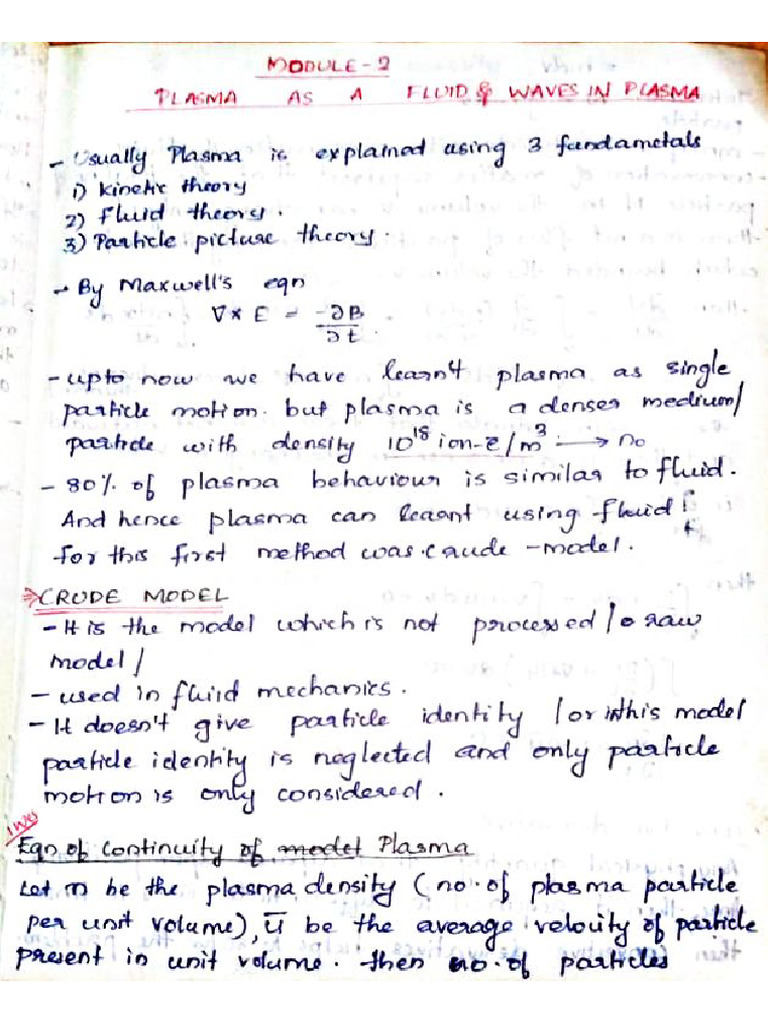 MODULE-2
PLASMA AS A FLUID & WAVES IN PLASMA
- Usually Plasma is explained using 3 fundametals
1) Kinetic theory
2) Fluid theory.
3) Particle picture theory.
- By Maxwell's eqn
∇ x E = -∂B
∂t
- upto now we have learn't plasma as single
particle motion. but plasma is a denser medium/
particle with density 10^18 ion-e/m^3 → no
- 80% of plasma behaviour is similar to fluid.
And hence plasma can learnt using fluid
for this first method was crude -model.
⇒ CRUDE MODEL
- It is the model which is not processed / o raw
model/
- used in fluid mechanics.
- It doesn't give particle identity / or in this model
particle identity is neglected and only particle
motion is only considered.
Eqn of continuity of model Plasma
Let n be the plasma density (no. of plasma particle
per unit volume), ū be the average velocity of particle
present in unit volume. then no. of particles